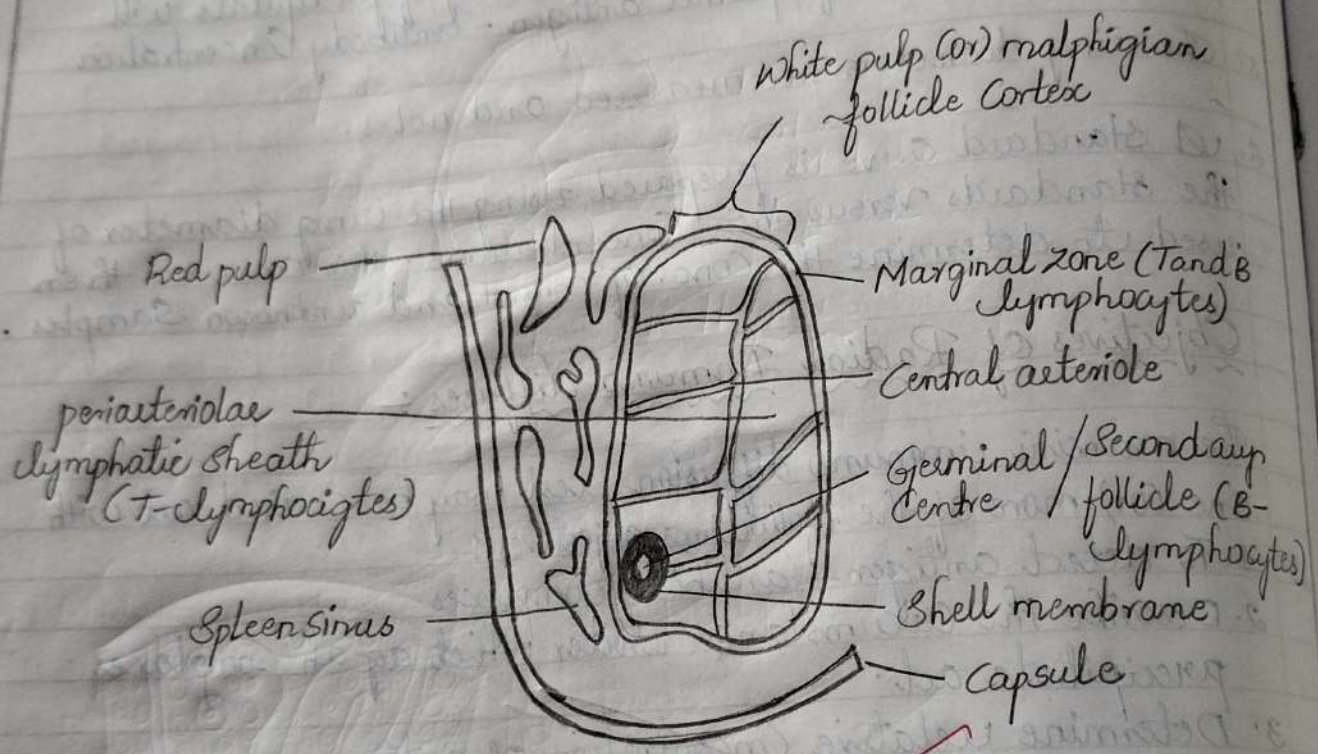 White pulp (or) malphigian
follicle Cortex
Red pulp
Marginal zone (T and B
lymphocytes)
Central arteriole
periarteriolar
lymphatic sheath
(T-lymphocigtes)
Germinal / Secondary
Centre / follicle (B-
lymphocytes)
Spleen sinus
Shell membrane
Capsule